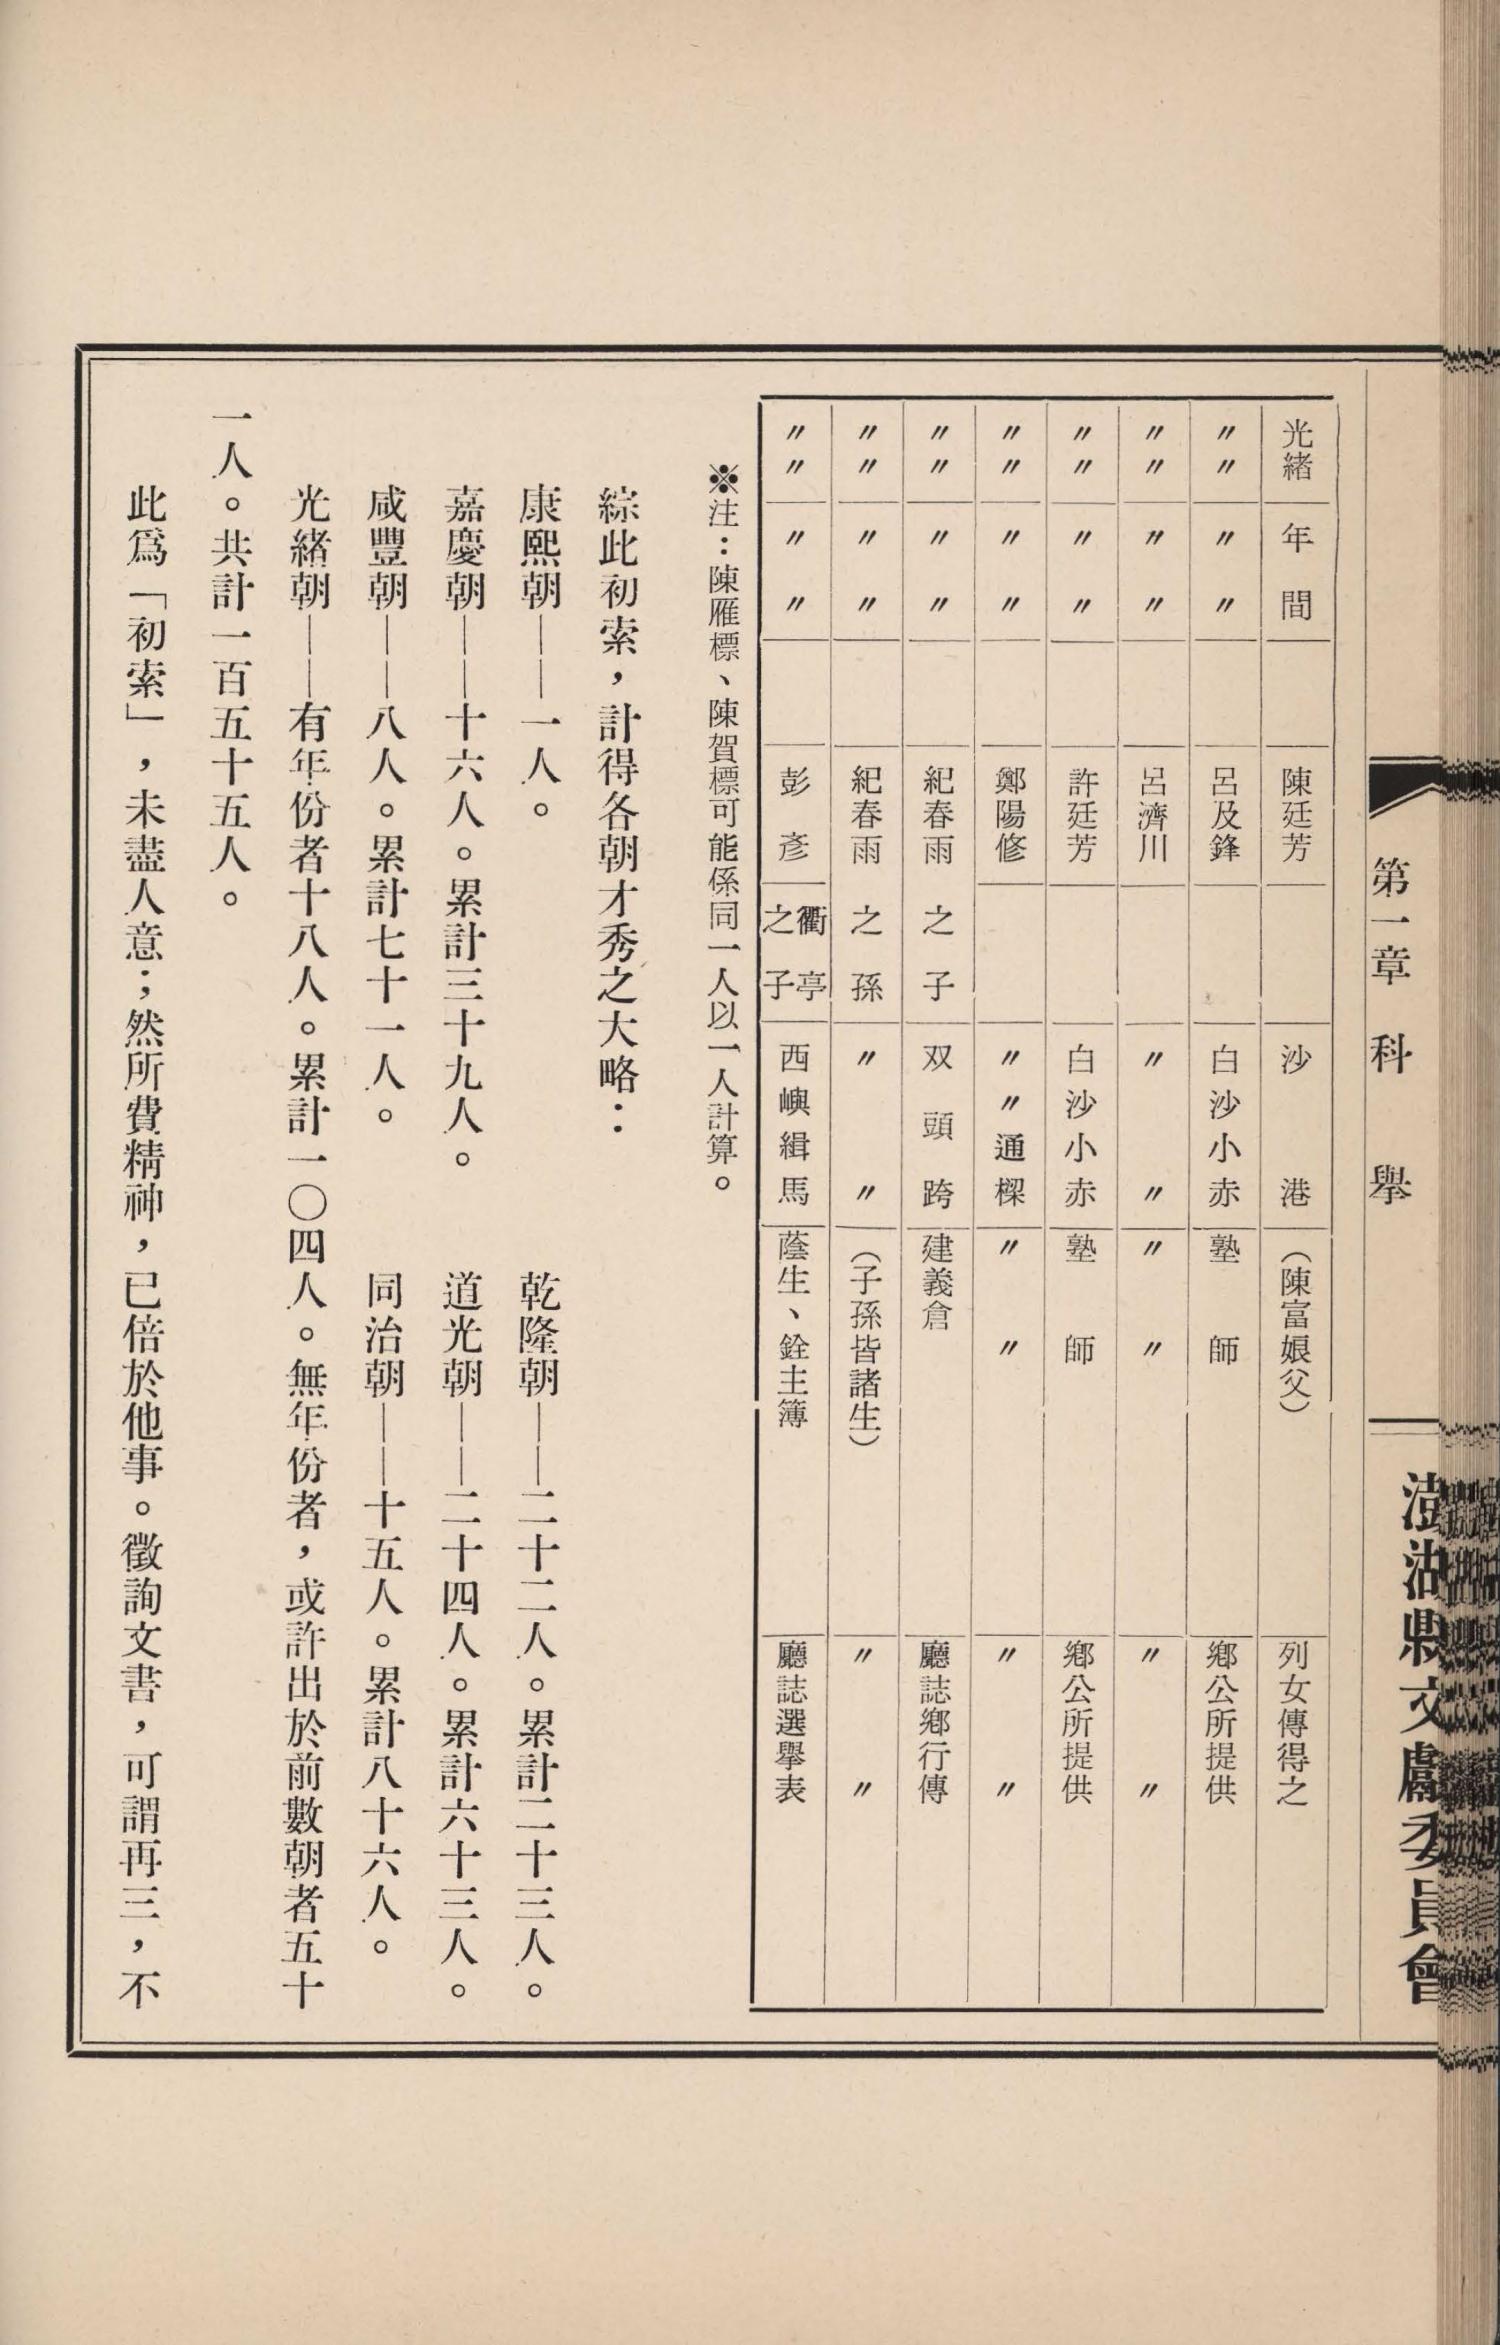 第一章　科　舉
澎湖縣文獻委員會
光緒　年間　陳廷芳　沙港　（陳富娘父）　列女傳得之
〃〃　〃〃　呂及鋒　白沙小赤　塾師　鄉公所提供
〃〃　〃〃　呂濟川　〃〃　〃〃　〃〃
〃〃　〃〃　許廷芳　白沙小赤　塾師　鄉公所提供
〃〃　〃〃　鄭陽修　〃〃通樑　〃〃　〃〃
〃〃　〃〃　紀春雨　之子　双頭跨　建義倉　廳誌鄉行傳
〃〃　〃〃　紀春雨　之孫　〃〃　（子孫皆諸生）　〃〃
〃〃　〃〃　彭彥　衢亭之子　西嶼緝馬　蔭生、銓主簿　廳誌選舉表
※注：陳雁標、陳賀標可能係同一人以一人計算。
綜此初索，計得各朝才秀之大略：
康熙朝——一人。　乾隆朝——二十二人。累計二十三人。
嘉慶朝——十六人。累計三十九人。　道光朝——二十四人。累計六十三人。
咸豐朝——八人。累計七十一人。　同治朝——十五人。累計八十六人。
光緒朝——有年份者十八人。累計一〇四人。無年份者，或許出於前數朝者五十
一人。共計一百五十五人。
此爲「初索」，未盡人意；然所費精神，已倍於他事。徵詢文書，可謂再三，不